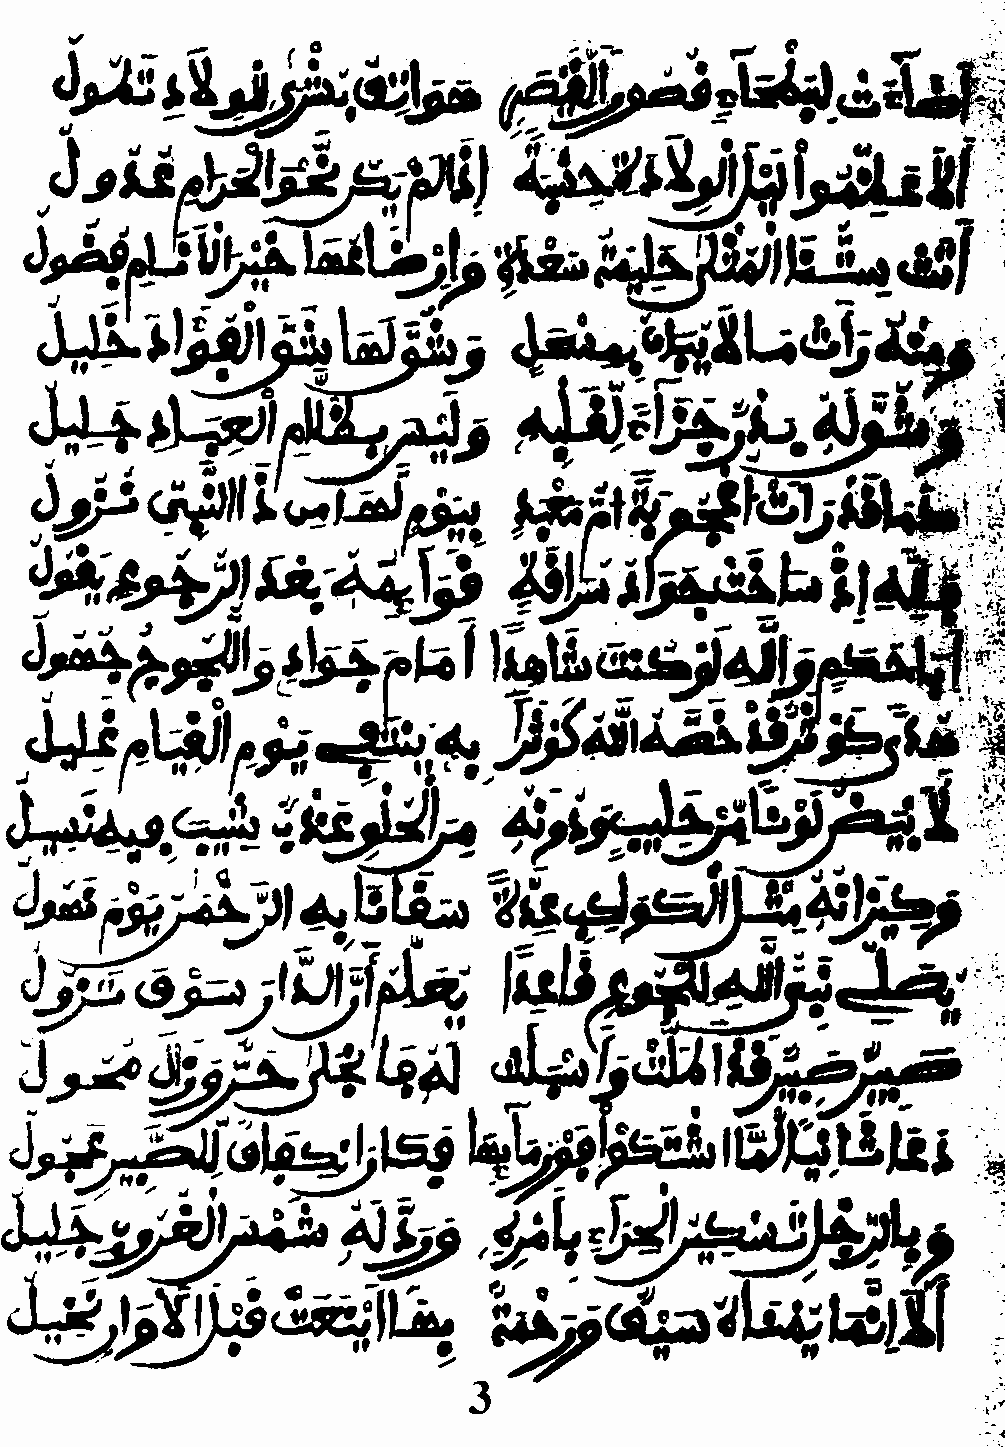 أضاءت لبطحاء قصور القيصر هواتف بشرى للولاد تقول
ألا علموا ليل الولادة جنبة إذا لم يكن نحو الحرام عدول
أتت بيتنا المثلى حليمة سعدة وإرضاعها خير الأنام فضول
ومنه رأت ما لا يطاق بمنهل وشق لها شق الفؤاد خليل
وشق له بدر جزاء لقلبه وليس بظلام العباد جليل
فما قد رأت أم معبد بيوم لها من ذا النبي نزول
ولله إذ ساخت جواد سراقة فوا بهه بعد الرجوع يقول
أبا حكم والله لو كنت شاهدا أمام جواد واللجوج جهول
هدى كوثر قد خصه الله كوثرا به ينتفي يوم القيام غليل
لأبيض لونا من حليب ودونه من الحلو عذب شيب فيه نسيل
وكيزانه مثل الكواكب عدة سقانا به الرحمن يوم نهول
يصلي نبي الله للجوع قاعدا يعلم أن الدار سوف تزول
قصير صبير قد أملت وأسبلت له فما نجلى حتى وزال محول
دعا ثانيا لما اشتكوا فوز مابها فكان انكفاف للصبير عجول
وبالرجل تسكين الحراء بأمره ورد له شمس الغروب جليل
ألا إنما يمناه سيف ورحمة بها أينعت قبل الأوان نخيل
3